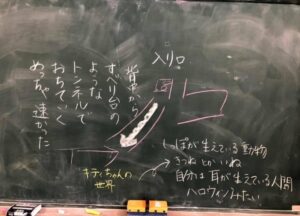 入り口
背中から
すべり台の
ような
トンネルで
おちていく
めっちゃ速かった
キティちゃんの
世界
しっぽが生えている動物
きつねとかいぬ
自分は耳が生えている人間
ハロウィンみたい